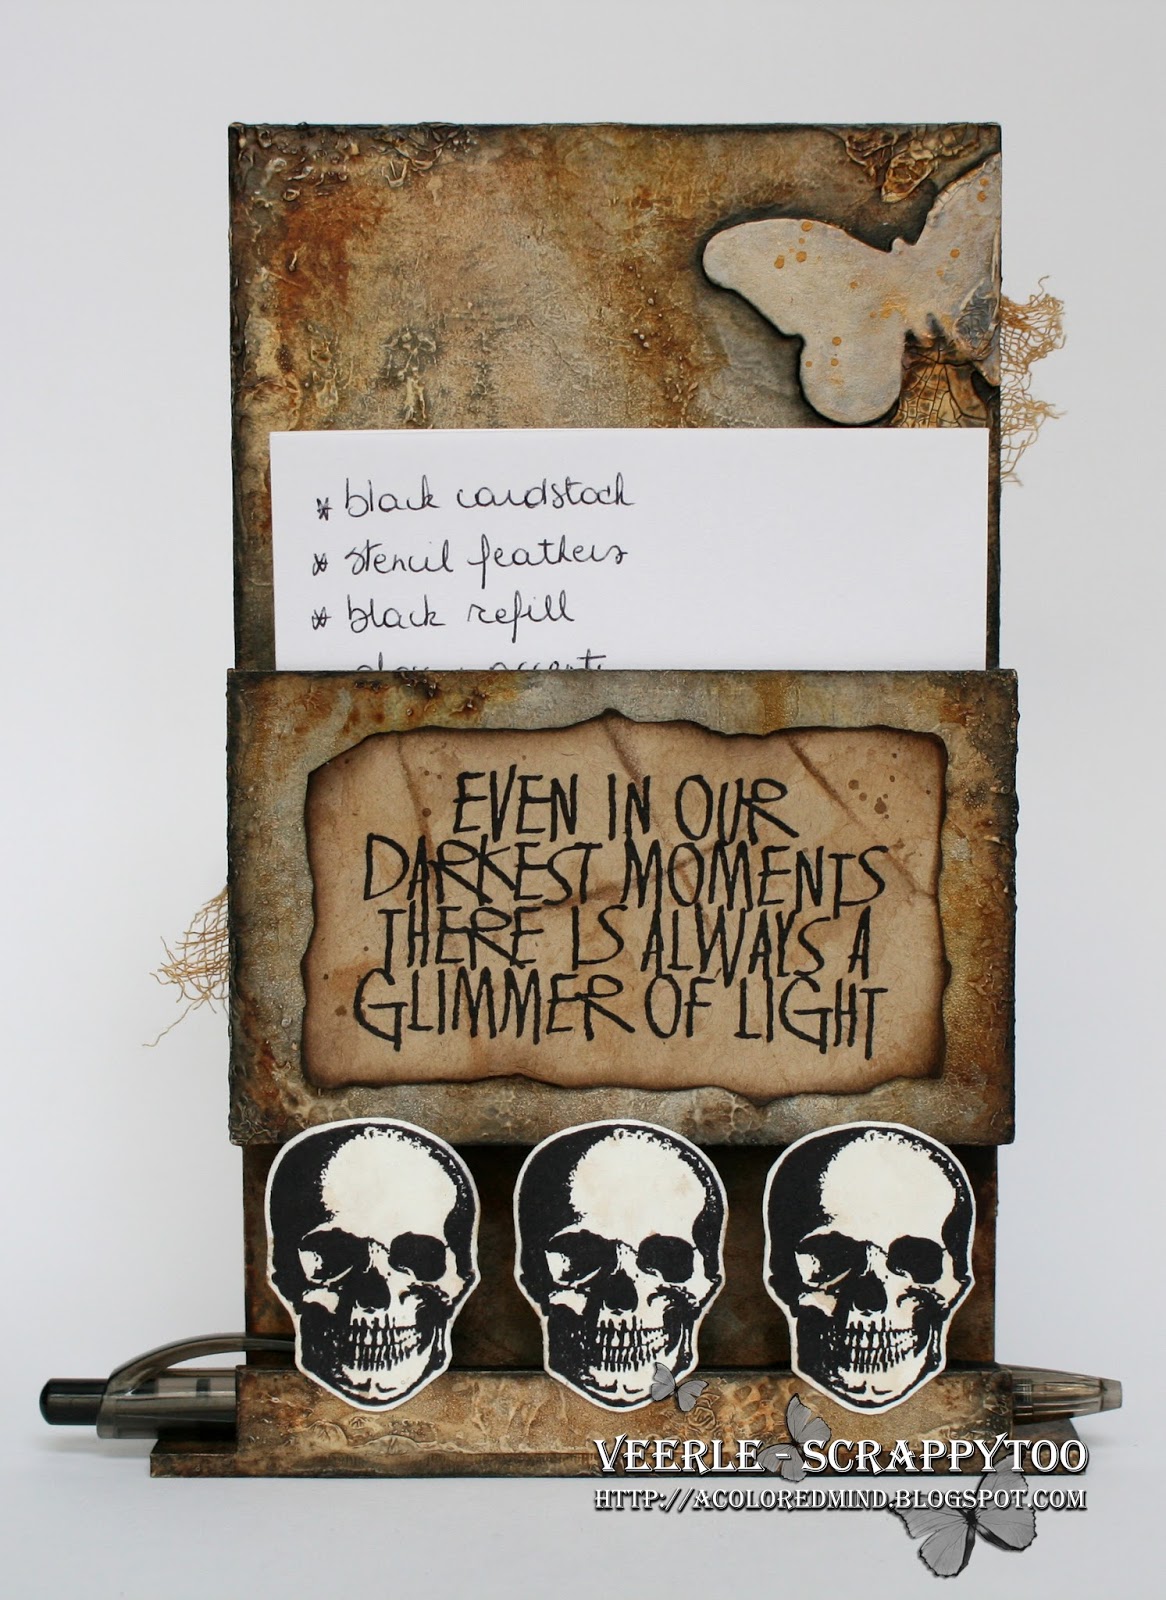 * black cardstock
* stencil feathers
* black refill
EVEN IN OUR
DARKEST MOMENTS
THERE IS ALWAYS A
GLIMMER OF LIGHT
VEERLE - SCRAPPYTOO
HTTP://ACOLOREDMIND.BLOGSPOT.COM